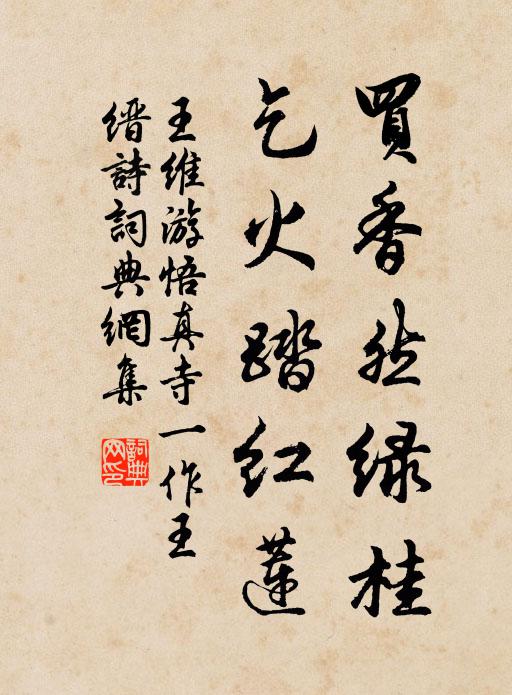 買香然绿桂
乞火踏红蓮
王維游悟真寺一作王
缙詩詞典網集
詞典网印